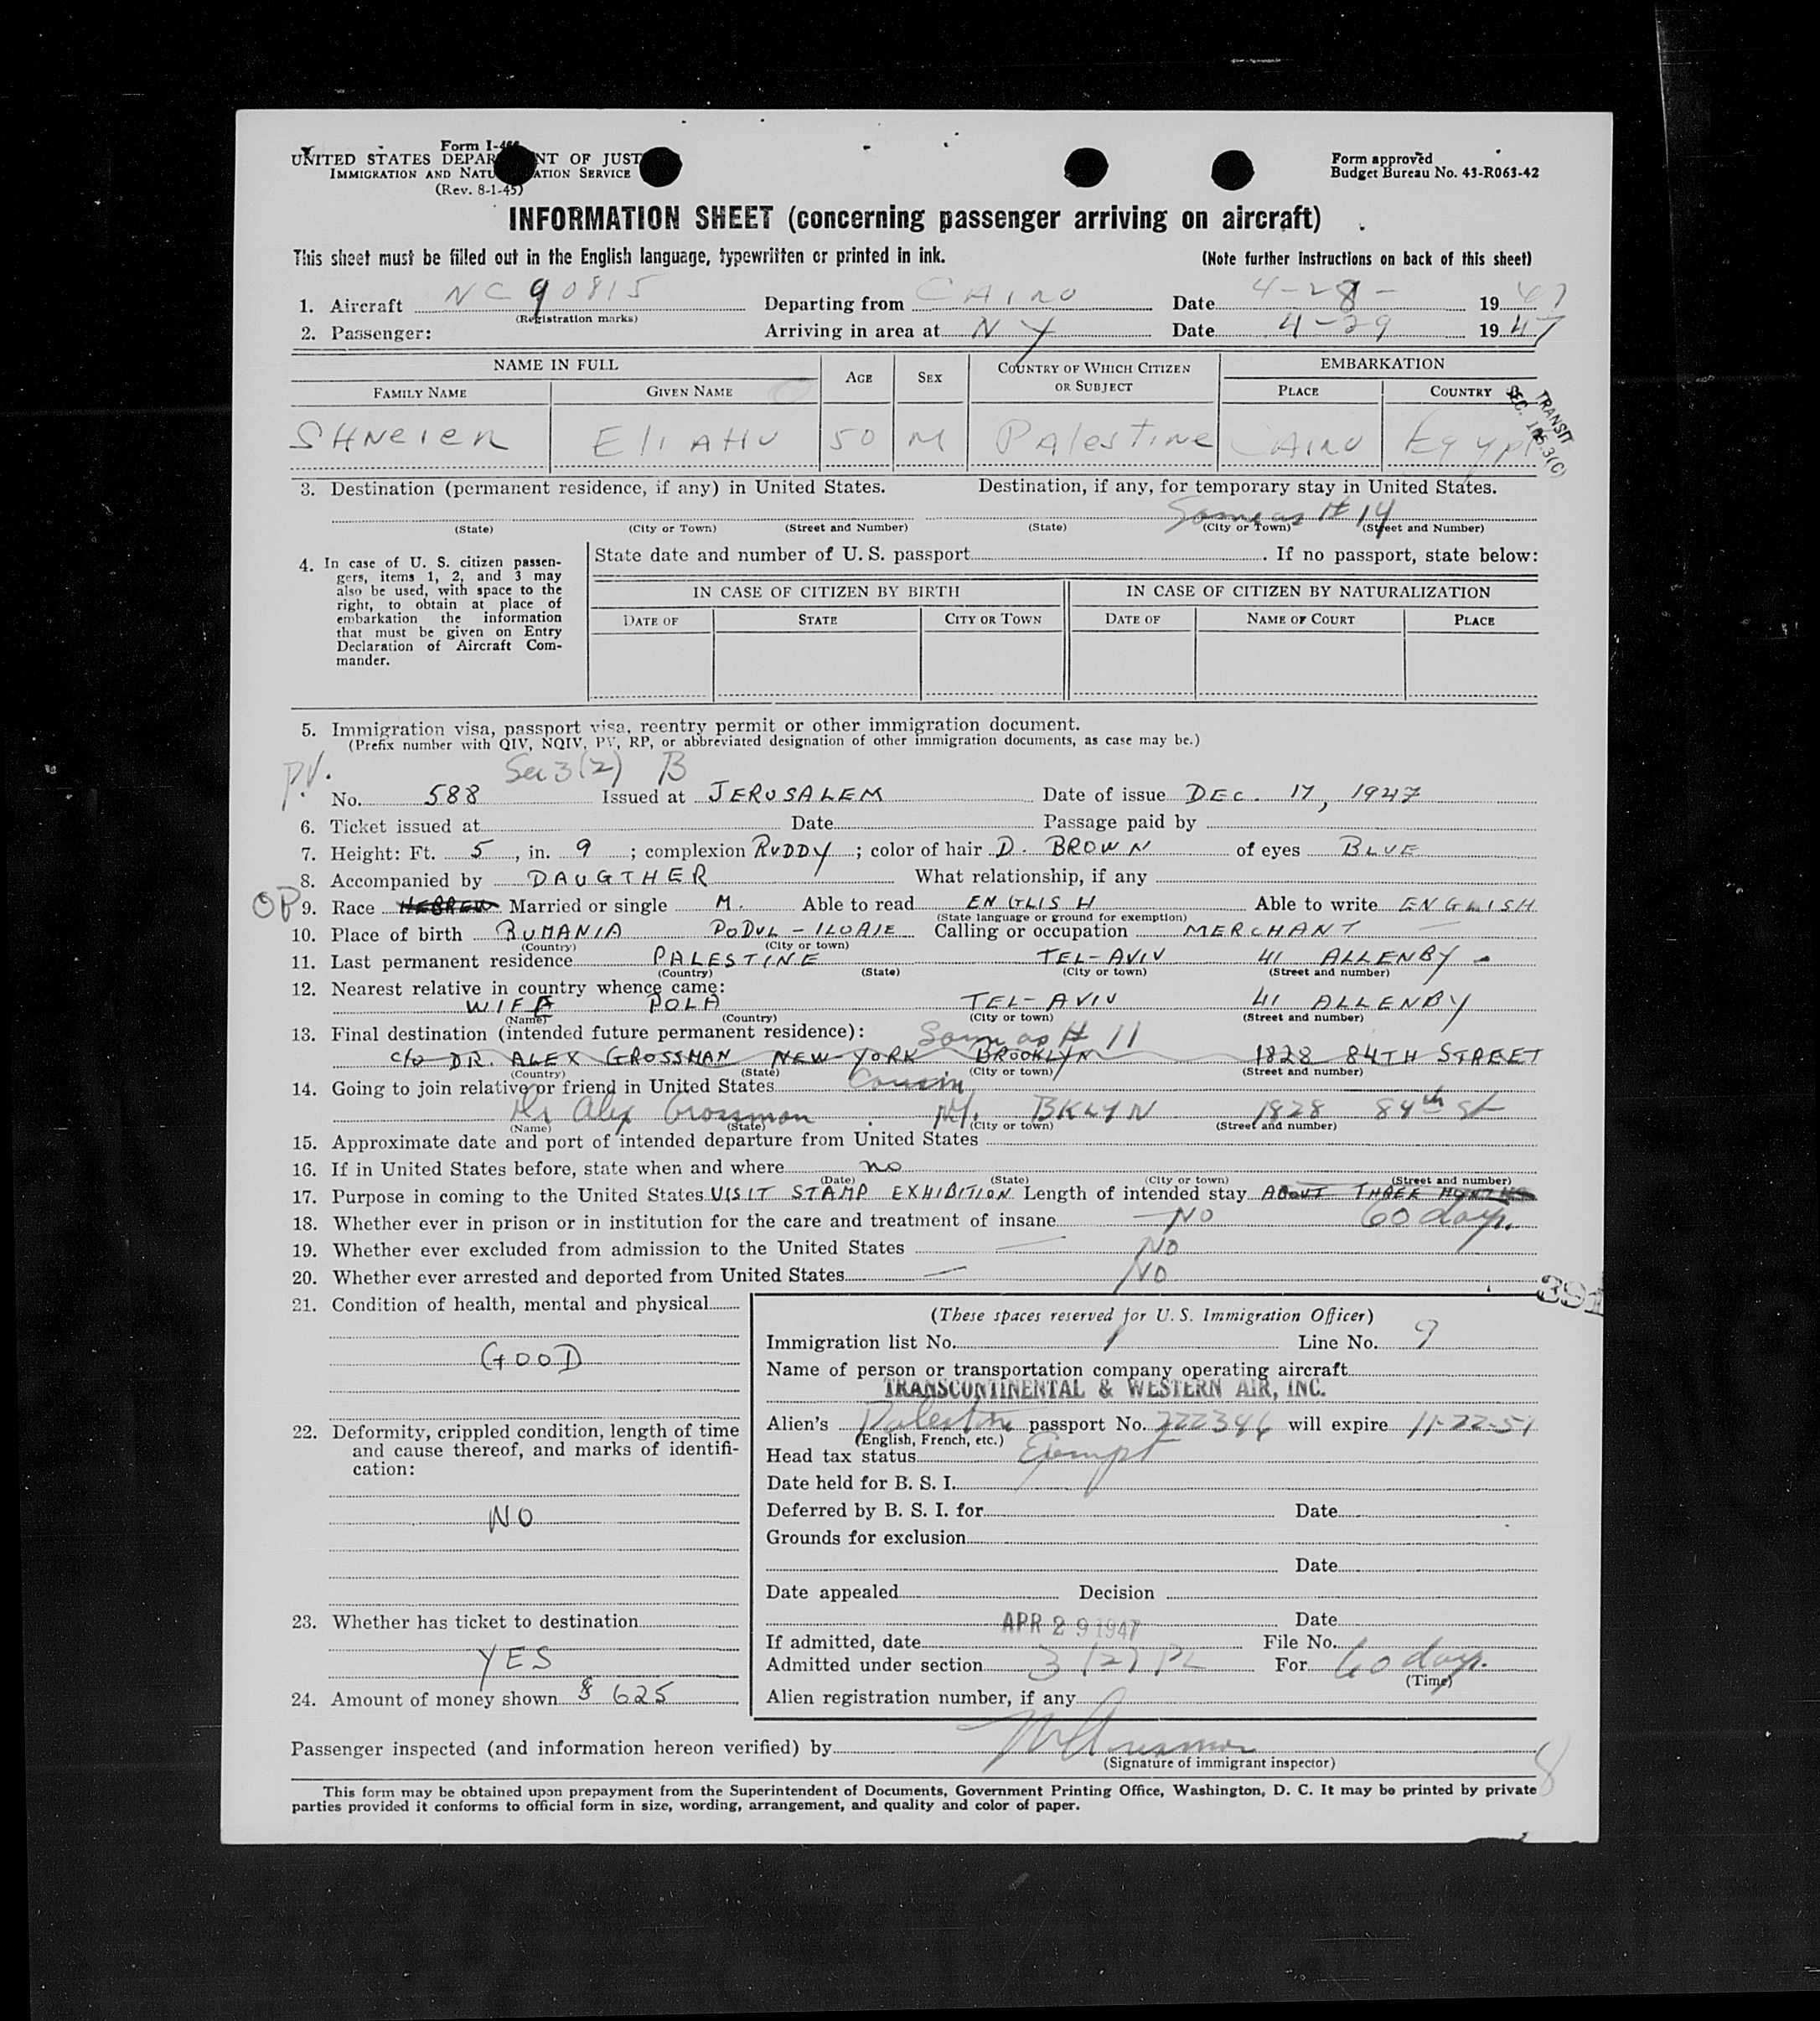 Form I-466
UNITED STATES DEPAR NT OF JUST
IMMIGRATION AND NATU ATION SERVICE
(Rev. 8-1-45)
Form approved
Budget Bureau No. 43-R063-42
INFORMATION SHEET (concerning passenger arriving on aircraft)
This sheet must be filled out in the English language, typewritten or printed in ink. (Note further instructions on back of this sheet)
1. Aircraft NC 90815 Departing from CAIRO Date 4-28- 1947
(Registration marks)
2. Passenger: Arriving in area at NY Date 4-29 1947
NAME IN FULL AGE SEX COUNTRY OF WHICH CITIZEN OR SUBJECT EMBARKATION
FAMILY NAME GIVEN NAME PLACE COUNTRY
TRANSIT
SEC. 3(C)
SHNeieR EliAHU 50 M PAlesTiNe CAIRO Egypt
3. Destination (permanent residence, if any) in United States. Destination, if any, for temporary stay in United States.
Same as # 14
(State) (City or Town) (Street and Number) (State) (City or Town) (Street and Number)
4. In case of U. S. citizen passen-
gers, items 1, 2, and 3 may
also be used, with space to the
right, to obtain at place of
embarkation the information
that must be given on Entry
Declaration of Aircraft Com-
mander.
State date and number of U. S. passport . If no passport, state below:
IN CASE OF CITIZEN BY BIRTH IN CASE OF CITIZEN BY NATURALIZATION
DATE OF STATE CITY OR TOWN DATE OF NAME OF COURT PLACE
5. Immigration visa, passport visa, reentry permit or other immigration document.
(Prefix number with QIV, NQIV, PV, RP, or abbreviated designation of other immigration documents, as case may be.)
P.V. Sec 3(2) B
No. 588 Issued at JERUSALEM Date of issue DEC. 17, 1947
6. Ticket issued at Date Passage paid by
7. Height: Ft. 5, in. 9; complexion RUDDY; color of hair D. BROWN of eyes BLUE
8. Accompanied by DAUGTHER What relationship, if any
OP 9. Race HEBREW Married or single M. Able to read ENGLISH Able to write ENGLISH
(State language or ground for exemption)
10. Place of birth RUMANIA PODUL-ILOAIE Calling or occupation MERCHANT
(Country) (City or town)
11. Last permanent residence PALESTINE TEL-AVIV 41 ALLENBY
(Country) (State) (City or town) (Street and number)
12. Nearest relative in country whence came:
WIFE POLA TEL-AVIV 41 ALLENBY
(Name) (Country) (City or town) (Street and number)
13. Final destination (intended future permanent residence): Same as # 11
c/o DR. ALEX GROSSMAN NEW-YORK BROOKLYN 1828 84TH STREET
(Country) (State) (City or town) (Street and number)
14. Going to join relative or friend in United States Cousin
Dr Alex Grossman NY. BKLYN 1828 84th St
(Name) (State) (City or town) (Street and number)
15. Approximate date and port of intended departure from United States
16. If in United States before, state when and where no
(Date) (State) (City or town) (Street and number)
17. Purpose in coming to the United States VISIT STAMP EXHIBITION Length of intended stay ABOUT THREE MONTHS
18. Whether ever in prison or in institution for the care and treatment of insane NO 60 days.
19. Whether ever excluded from admission to the United States NO
20. Whether ever arrested and deported from United States NO
391
21. Condition of health, mental and physical
GOOD
22. Deformity, crippled condition, length of time
and cause thereof, and marks of identifi-
cation:
NO
23. Whether has ticket to destination
YES
24. Amount of money shown $ 625
(These spaces reserved for U. S. Immigration Officer)
Immigration list No. 1 Line No. 9
Name of person or transportation company operating aircraft
TRANSCONTINENTAL & WESTERN AIR, INC.
Alien's Palestine passport No. 222346 will expire 11-22-51
(English, French, etc.)
Head tax status Exempt
Date held for B. S. I.
Deferred by B. S. I. for Date
Grounds for exclusion
Date
Date appealed Decision
Date
If admitted, date APR 29 1947 File No.
Admitted under section 3(2) PL For 60 days.
(Time)
Alien registration number, if any
Passenger inspected (and information hereon verified) by
(Signature of immigrant inspector)
8
This form may be obtained upon prepayment from the Superintendent of Documents, Government Printing Office, Washington, D. C. It may be printed by private
parties provided it conforms to official form in size, wording, arrangement, and quality and color of paper.